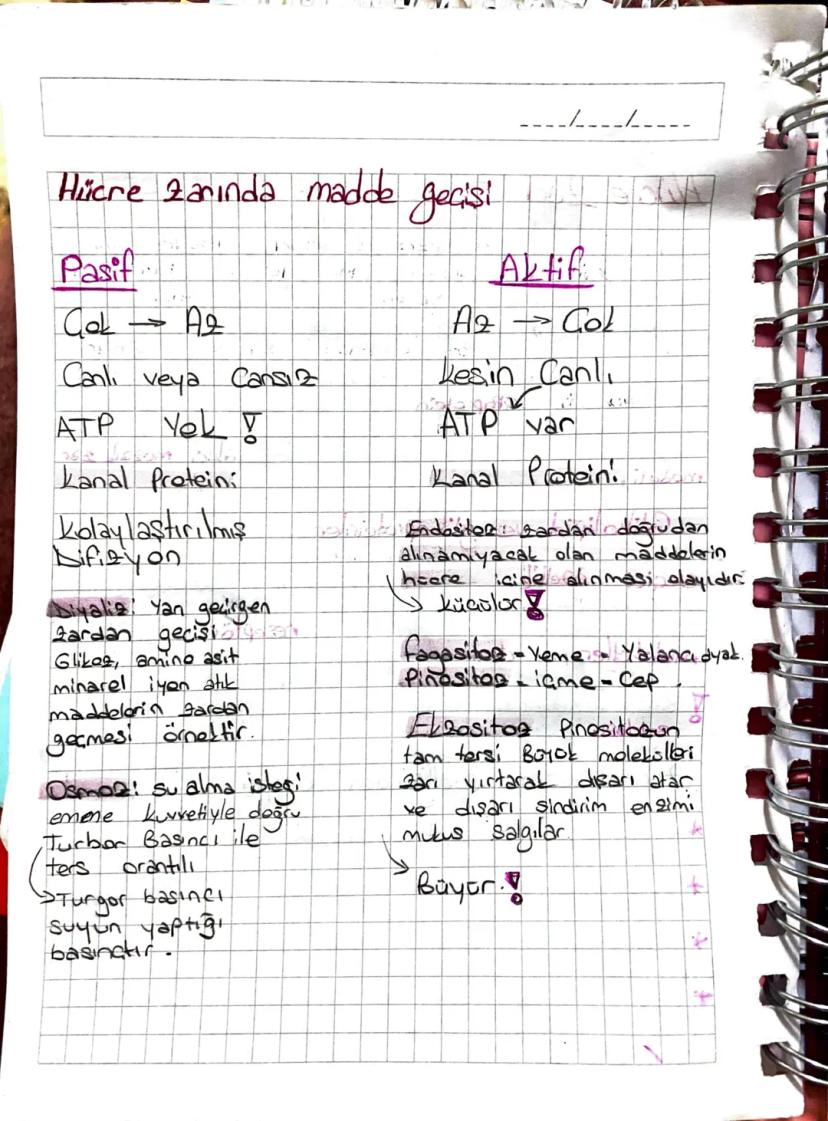 ---/---/-----
Hücre zarında madde geçişi
Pasif
Çok → Az
Canlı veya Cansız
ATP Yok !
Kanal Proteini
Kolaylaştırılmış
Difizyon
Diyaliz: Yarı geçirgen
zardan geçişi
Glikoz, amino asit
minarel iyon atık
maddelerin zardan
geçmesi örnektir.
Osmoz: su alma isteği
emme kuvvetiyle doğru
Turbor Basıncı ile
ters orantılı
→ Turgor basıncı
suyun yaptığı
basınçtır.
Aktif
Az → Çok
Kesin Canlı
ATP var
Kanal Proteini
Endositoz: zardan doğrudan
alınamıyacak olan maddelerin
hücre içine alınması olayıdır.
→ Küçülür !
Fagasitoz = Yeme - Yalancı ayak.
Pinositoz - içme - Cep .
Ekzositoz Pinositozun
tam tersi Büyük molekülleri
zarı yırtarak dışarı atar
ve dışarı sindirim enzimi
mukus salgılar
→ Büyür. !